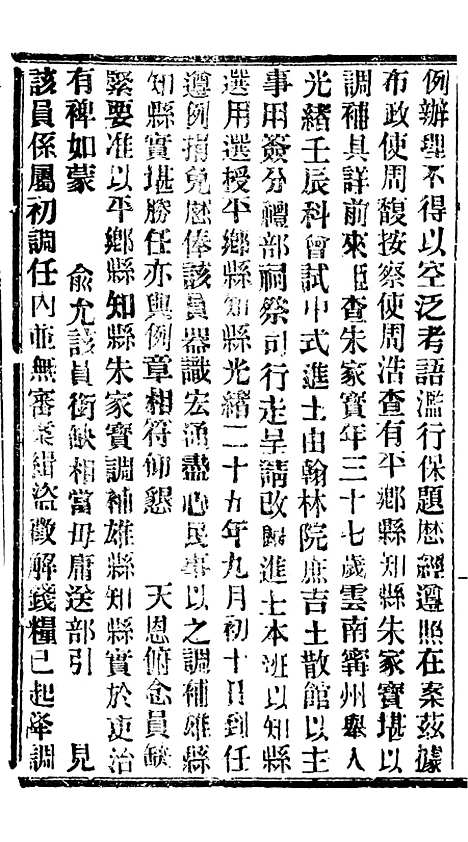 例辦理不得以空泛考語濫行保題歷經遵照在案茲據
布政使周馥按察使周浩查有平鄉縣知縣朱家寶堪以
調補具詳前來臣查朱家寶年三十七歲雲南甯州舉人
光緒壬辰科會試中式進士由翰林院庶吉士散館以主
事用簽分禮部祠祭司行走呈請改歸進士本班以知縣
選用選授平鄉縣知縣光緒二十五年九月初十日到任
遵例捐免歷俸該員器識宏通盡心民事以之調補雄縣
知縣實堪勝任亦與例章相符仰懇 天恩俯念員缺
緊要准以平鄉縣知縣朱家寶調補雄縣知縣實於吏治
有裨如蒙 俞允該員銜缺相當毋庸送部引 見
該員係屬初調任內並無審案緝盜徵解錢糧已起降調